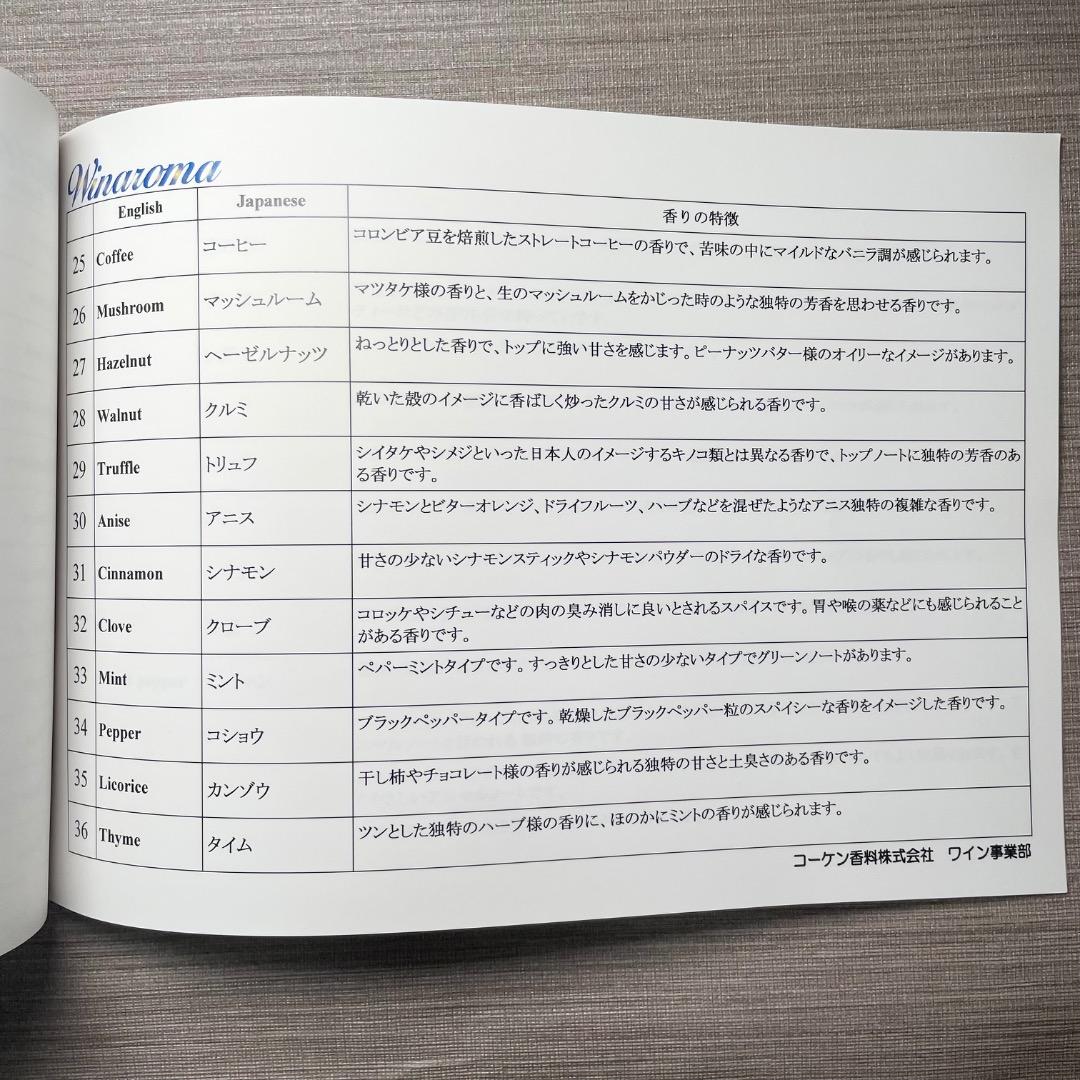 Winaroma
English Japanese 香りの特徴
25 Coffee コーヒー コロンビア豆を焙煎したストレートコーヒーの香りで、苦味の中にマイルドなバニラ調が感じられます。
26 Mushroom マッシュルーム マツタケ様の香りと、生のマッシュルームをかじった時のような独特の芳香を思わせる香りです。
27 Hazelnut ヘーゼルナッツ ねっとりとした香りで、トップに強い甘さを感じます。ピーナッツバター様のオイリーなイメージがあります。
28 Walnut クルミ 乾いた殻のイメージに香ばしく炒ったクルミの甘さが感じられる香りです。
29 Truffle トリュフ シイタケやシメジといった日本人のイメージするキノコ類とは異なる香りで、トップノートに独特の芳香のあ
る香りです。
30 Anise アニス シナモンとビターオレンジ、ドライフルーツ、ハーブなどを混ぜたようなアニス独特の複雑な香りです。
31 Cinnamon シナモン 甘さの少ないシナモンスティックやシナモンパウダーのドライな香りです。
32 Clove クローブ コロッケやシチューなどの肉の臭み消しに良いとされるスパイスです。胃や喉の薬などにも感じられること
がある香りです。
33 Mint ミント ペパーミントタイプです。すっきりとした甘さの少ないタイプでグリーンノートがあります。
34 Pepper コショウ ブラックペッパータイプです。乾燥したブラックペッパー粒のスパイシーな香りをイメージした香りです。
35 Licorice カンゾウ 干し柿やチョコレート様の香りが感じられる独特の甘さと土臭さのある香りです。
36 Thyme タイム ツンとした独特のハーブ様の香りに、ほのかにミントの香りが感じられます。
コーケン香料株式会社 ワイン事業部